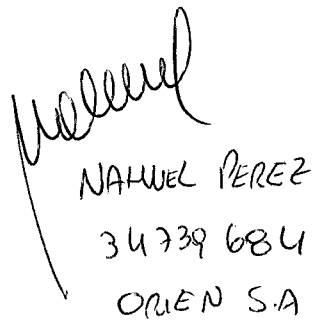 Nahuel
NAHUEL PEREZ
34739684
ORIEN S.A